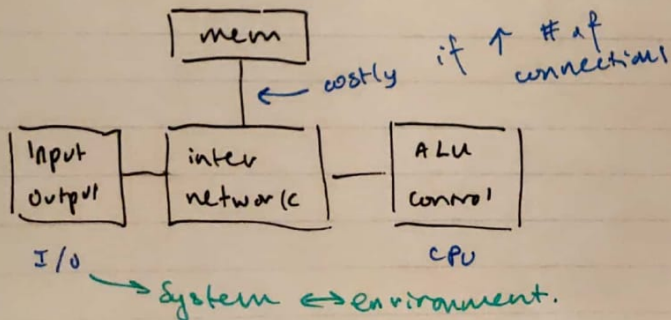 mem
costly if ↑ # of
connections
Input
Output
inter
network
ALU
control
I/O
CPU
→ System ↔ environment.